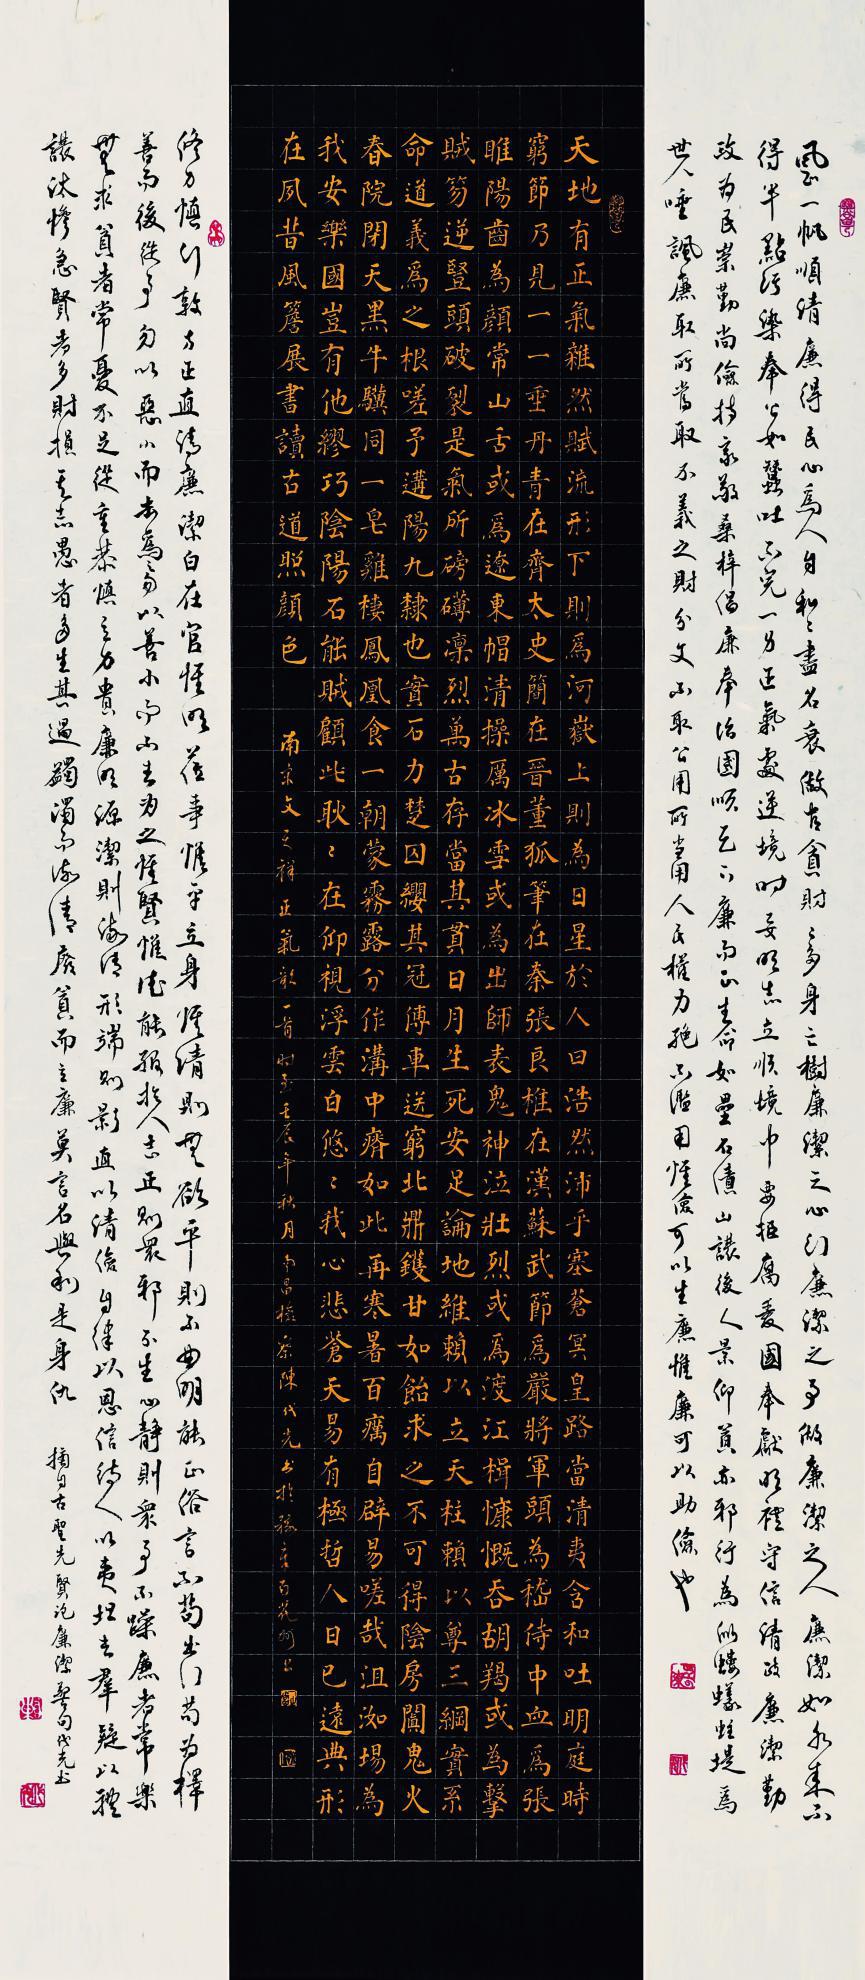 風正一帆順清廉得民心為人自私私盡名哀做官貪財財多身亡樹廉潔之心行廉潔之事做廉潔之人廉潔如水來不
得半點污染奉公如蠶吐不完一身正氣處逆境時要明志立順境中要拒腐愛國奉獻明禮守信清政廉潔勤
政為民業勤尚儉持家敬桑梓倡廉奉法國順民心廉而正生命如壘石漬山讓後人景仰貪赤邪行為似螻蟻蛀堤爲
世人唾諷廉取所當取不義之財分文不取公用所當用人民權力絕不濫用惟儉可以生廉惟廉可以助儉也
天地有正氣雜然賦流形下則爲河嶽上則為日星於人曰浩然沛乎塞蒼冥皇路當清夷含和吐明庭時
窮節乃見一一垂丹青在齊太史簡在晉董狐筆在秦張良椎在漢蘇武節爲嚴將軍頭為嵇侍中血爲張
睢陽齒為顏常山舌或爲遼東帽清操厲冰雪或為出師表鬼神泣壯烈或爲渡江楫慷慨吞胡羯或為擊
賊笏逆豎頭破裂是氣所磅礴凛烈萬古存當其貫日月生死安足論地維賴以立天柱賴以尊三綱實系
命道義爲之根嗟予遘陽九隸也實石力楚囚纓其冠傳車送窮北鼎鑊甘如飴求之不可得陰房闃鬼火
春院閉天黑牛驥同一皂雞棲鳳凰食一朝蒙霧露分作溝中瘠如此再寒暑百癘自辟易嗟哉沮洳場為
我安樂國豈有他繆巧陰陽石能賊顧此耿ミ在仰視浮雲白悠ミ我心悲蒼天曷有極哲人日已遠典形
在夙昔風簷展書讀古道照顏色
南宋文天祥正氣歌一首時在壬辰年秋月南昌檢察陳代先書於豫章百花洲上
修身慎行敦方正直清廉潔白在官惟明蒞事惟平立身惟清清則無欲平則不曲明能正俗言不苟出行不苟為擇
善而後從事勿以惡小而為之勿以善小而不為之惟賢惟德能服於人志正則眾邪不生心靜則眾事不躁廉者常樂
無求貪者常憂不足從吏恭慎立身貴廉明源潔則流清形端則影直以清儉自律以恩信待人以夷坦去群疑以禮
讓汰慘急賢者多財損其志愚者多生其過蠲濁而流清廢貪而立廉莫言名與利是身仇
摘自古聖先賢論廉潔警句代先書